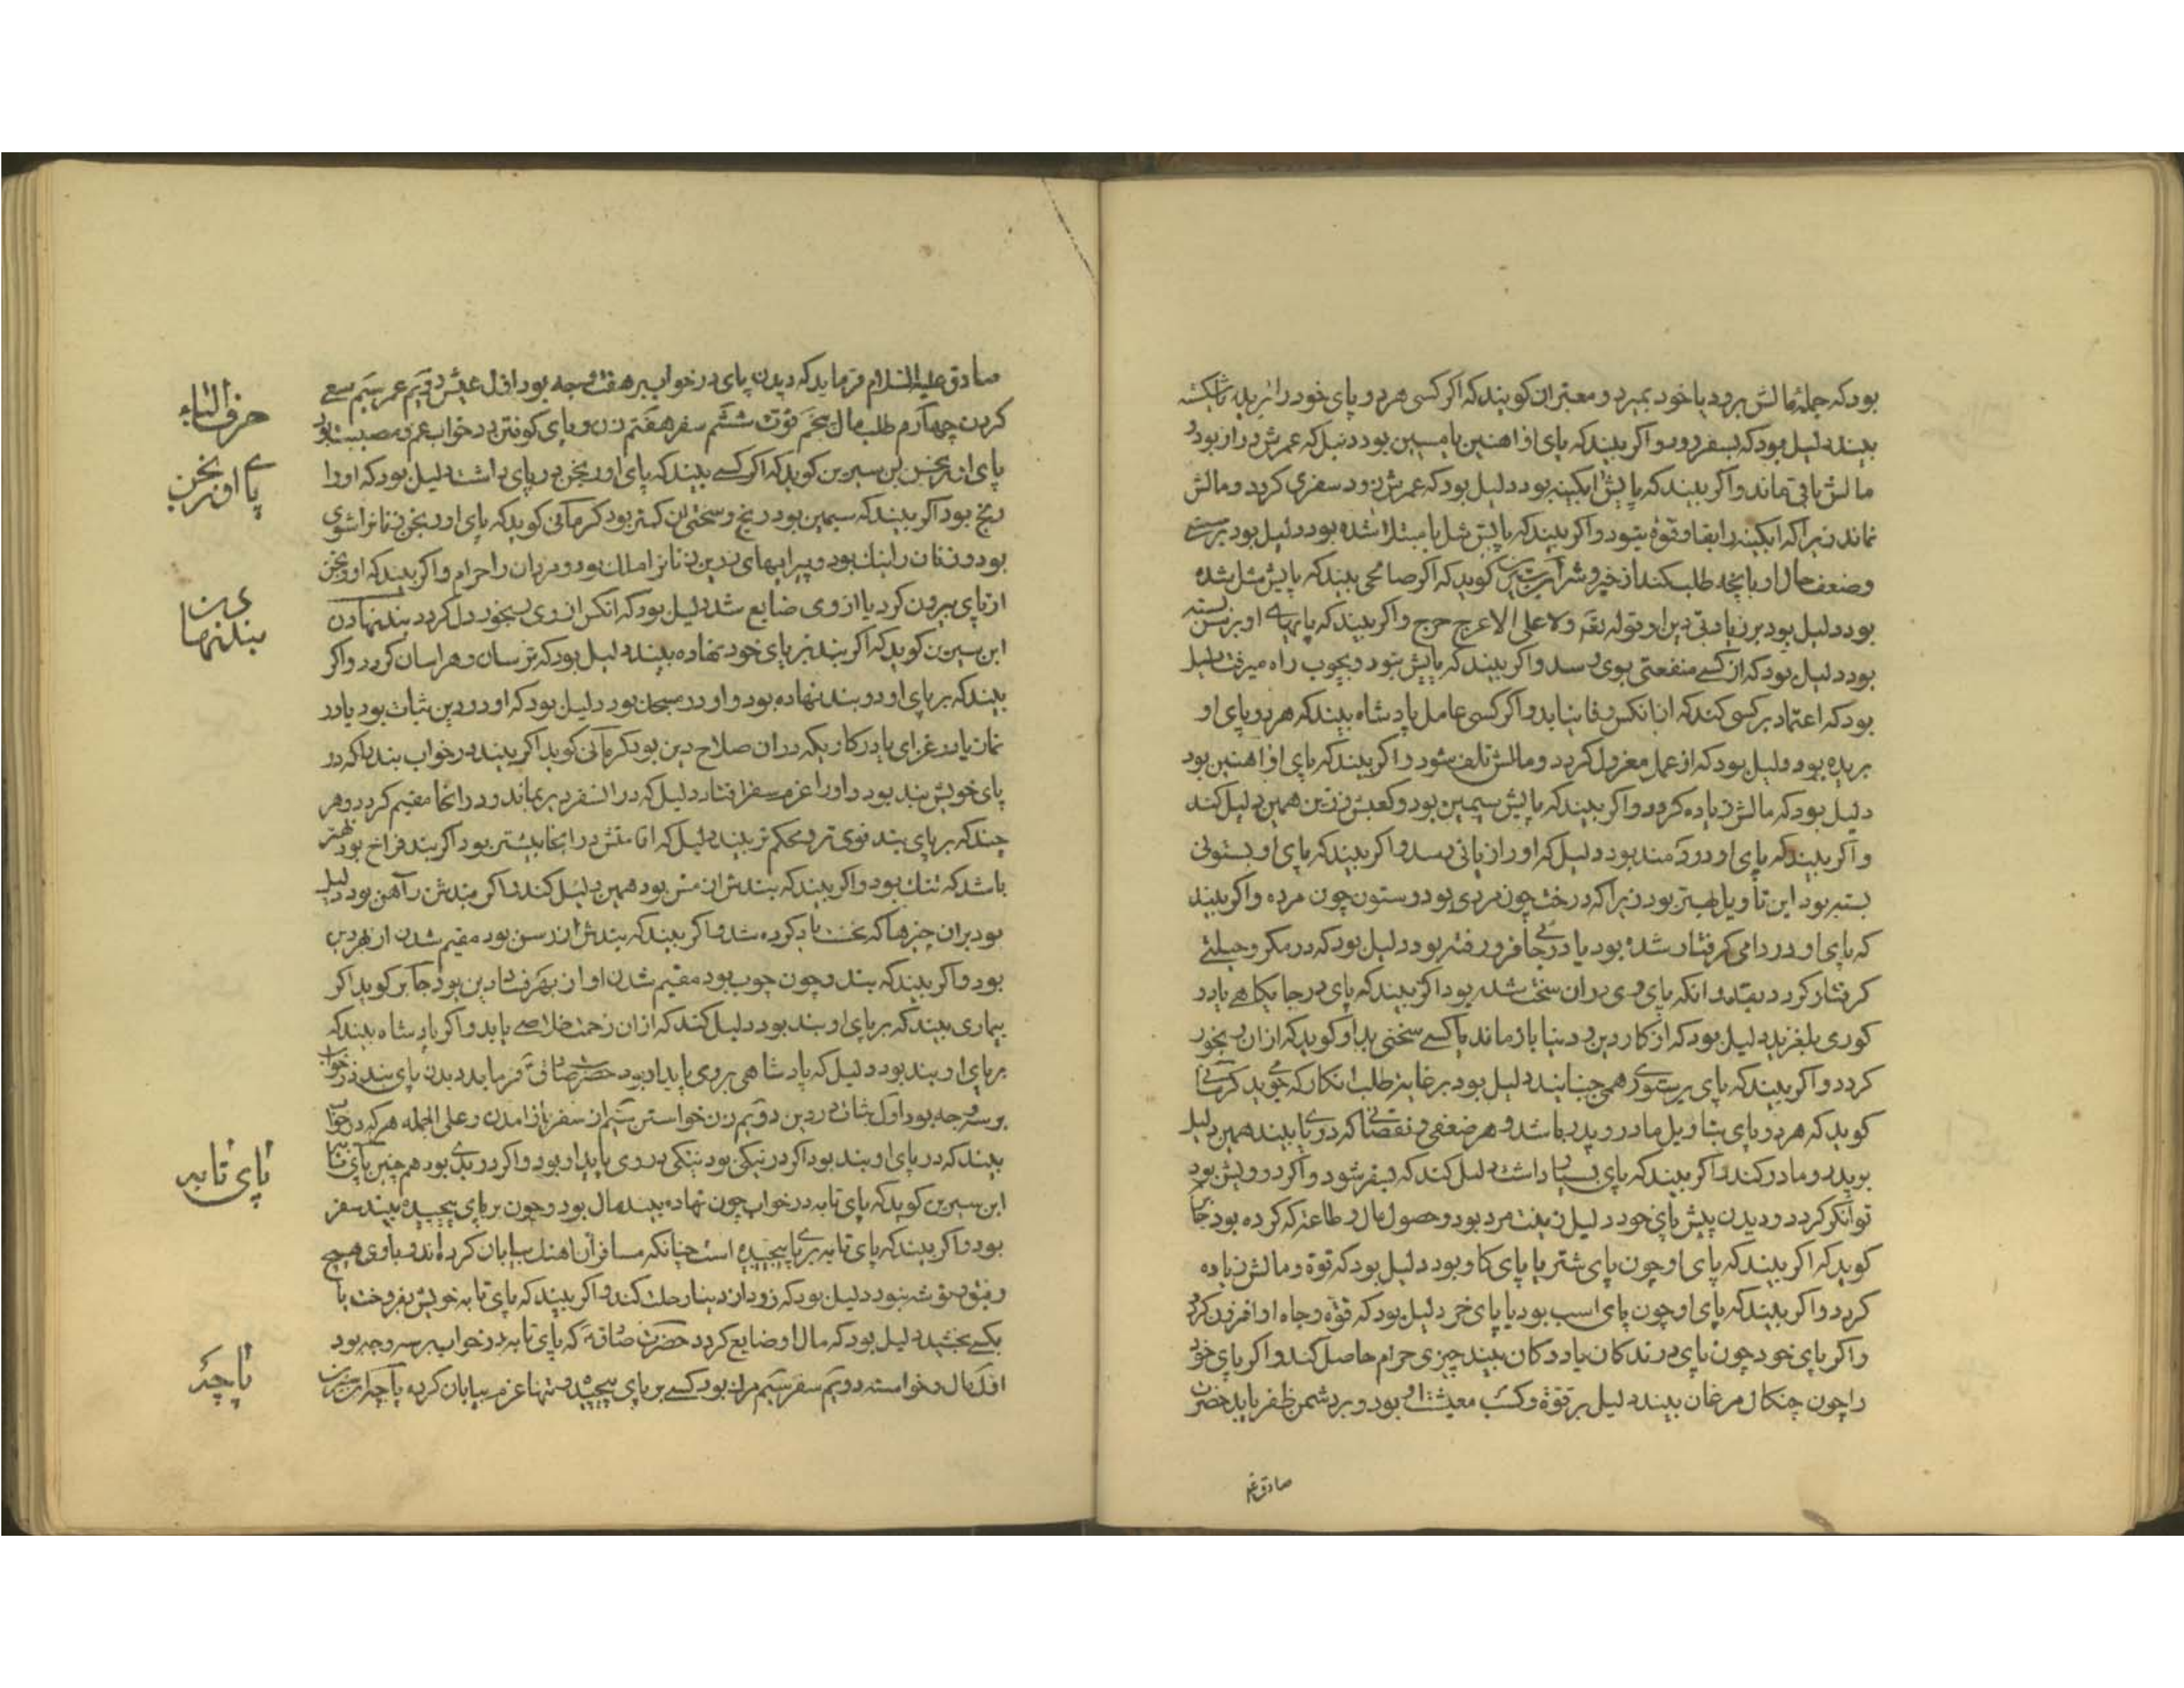 بود که جمله مالش برود یا خود بمیرد و معبران کویند که اکر کسی هر دو پای خود را بریده یا شکسته
بیند دلیل بود که بسفر رود و اکر بیند که پای او اهنین یا مسین بود دلیل که عمرش دراز بود و
مالش باقی ماند و اکر بیند که پایش ابکینه بود دلیل بود که عمرش زود سفری کردد و مالش
نماند زیرا که ابکینه را بقا و قوة نبود و اکر بیند که پایش شل یا مبتلا شده بود دلیل بود بر سستی
وضعف حال او بانچه طلب کند از خیر و شر ابن سیرین کوید که اکر صالحی بیند که پایش شل شده
بود دلیل بود بر زیادتی دین او قوله تع ولا علی الاعرج حرج و اکر بیند که پایهای او بر بسته
بود دلیل بود که از کسی منفعتی بوی رسد و اکر بیند که پایش نبود و بچوب راه میرفت دلیل
بود که اعتماد بر کسی کند که از انکس وفا نیابد و اکر کسی عامل پادشاه بیند که هر دو پای او
بریده بود دلیل بود که از عمل معزول کردد و مالش تلف شود و اکر بیند که پای او اهنین بود
دلیل بود که مالش زیاده کردد و اکر بیند که پایش سیمین بود و کعبش زرین همین دلیل کند
و اکر بیند که پای او درد مند بود دلیل که او را زیانی رسد و اکر بیند که پای او بستونی
بسته بود این تأویل بهتر بود زیرا که درخت چون مردی بود و ستون چون مرده و اکر بیند
که پای او در دامی کرفتار شده بود یا در جائی فرو رفته بود دلیل بود که در مکر و حیلتی
کرفتار کردد بقدر انکه پای وی در ان سخت شده بود و اکر بیند که پای در جایکاهی یا در
کوری بلغزید دلیل بود که از کار دین و دنیا باز ماند یا کسی سختی بد او کوید که از ان رنجور
کردد و اکر بیند که پای بر ستوری همی جنبانید دلیل بود بر غایة طلب انکار که میجوید کرمانی
کوید که هر دو پای بتاویل مادر و پدر باشد و هر ضعفی و نقصانی که در وی بیند همین دلیل
بر پدر و مادر کند و اکر بیند که پای بسیار داشت دلیل کند که بسفر شود و اکر درویش بود
توانکر کردد و دیدن پیش پای خود دلیل زینت مرد بود و حصول مال و طاعت که کرده بود جابر
کوید که اکر بیند که پای او چون پای شتر یا پای کاو بود دلیل بود که قوة و مالش زیاده
کردد و اکر بیند که پای او چون پای اسب بود یا پای خر دلیل بود که قوة و جاه او افزون کردد
و اکر پای خود چون پای درندکان یا ددکان بیند چیزی حرام حاصل کند و اکر پای خود
را چون چنکال مرغان بیند دلیل بر قوة و کسب معیشت او بود و بر دشمن ظفر یابد حضرت
صادق ع
صادق علیه السلام فرماید که دیدن پای در خواب بر هفت وجه بود اول عیش دویم عمر سیم سعی
کردن چهارم طلب مال پنجم قوت ششم سفر هفتم زن و پای کوفتن در خواب غم و مصیبت بود
پای اورنجن ابن سیرین کوید که اکر کسی بیند که پای اورنجن در پای داشت دلیل بود که او را
رنج بود اکر بیند که سیمین بود رنج و سختی ان کمتر بود کرمانی کوید که پای اورنجن زنانرا شوی
بود و زنان را نیک بود و پیرایهای زرین زنانرا ملک بود و مردان را حرام و اکر بیند که اورنجن
از پای بیرون کرد یا از وی ضایع شد دلیل بود که انکس از وی رنجور دل کردد بند نهادن
ابن سیرین کوید که اکر بند بر پای خود نهاده بیند دلیل بود که ترسان و هراسان کردد و اکر
بیند که بر پای او دو بند نهاده بود و او در مسجد بود دلیل بود که او در دین ثبات بود یا در
نماز یا در غزای یا در کاریکه در ان صلاح دین بود کرمانی کوید اکر بیند در خواب بند پا که در
پای خویش بند بود و او را عزم سفر افتاد دلیل که در انسفر دیر بماند و در انجا مقیم کردد و هر
چند که بر پای بند قوی تر و محکم تر بیند دلیل که اقامتش در انجا بیشتر بود اکر بند فراخ بود بهتر
باشد که تنک بود و اکر بیند که بندش از مس بود همین دلیل کند و اکر بندش ز آهن بود دلیل
بود بران چیزها که نخست یاد کرده شد و اکر بیند که بندش از رسن بود مقیم شدن از بهر دین
بود و اکر بیند که بند وی چون چوب بود مقیم شدن او از بهر فساد دین بود جابر کوید اکر
بیماری بیند که بر پای او بند بود دلیل کند که از ان زحمت خلاصی یابد و اکر پادشاه بیند که
بر پای او بند بود دلیل که پادشاهی بر وی پایدار بود حضرت صادق فرماید دیدن پای بند در خواب
بر سه وجه بود اول ثبات در دین دویم زن خواستن سیم از سفر باز امدن و علی الجمله هر که در خواب
بیند که در پای او بند بود اکر در نیکی بود نیکی بر وی پایدار بود و اکر در بدی بود هم چنین پای تابه
ابن سیرین کوید که پای تابه در خواب چون نهاده بیند مال بود و چون بر پای پیچیده بیند سفر
بود و اکر بیند که پای تابه بر پا پیچیده است چنانکه مسافران اهنک بیابان کرده اند و با وی هیچ
رفیق و توشه نبود دلیل بود که زود از دنیا رحلت کند و اکر بیند که پای تابه خویش بفروخت یا
بکسی بخشید دلیل بود که مال او ضایع کردد حضرت صادق که پای تابه در خواب بر سه وجه بود
اول مال و خواسته دویم سفر سیم مرک بود کسی بر پای پیچیده و تنها عزم بیابان کرده پاچه ابن سیرین
حرف الباء
پای اورنجن
بند نهادن
پای تابه
پاچه